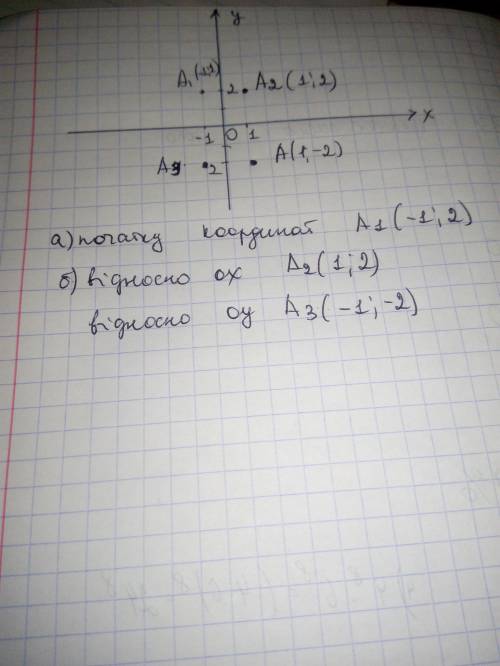 y
A1 2 A2 (1; 2)
x
-1 0 1
A3 2 A(1, -2)
а) початку координат A1 (-1; 2)
б) відносно ox A2 (1; 2)
відносно oy A3 (-1; -2)